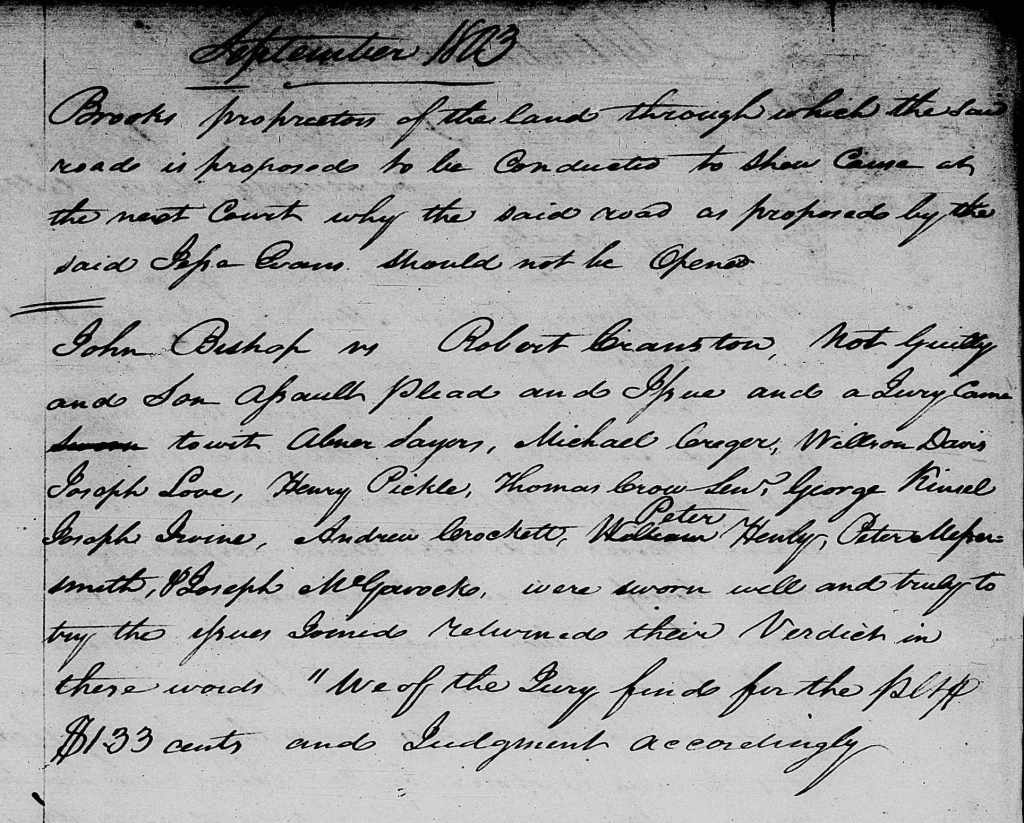 September 1803
Brooks proprietors of the land through which the said
road is proposed to be Conducted to Shew Cause at
the next Court why the said road as proposed by the
said Jesse Evans should not be Opened
John Bishop vs Robert Cranston, Not Guilty
and Son Assault plead and Issue and a Jury Came
sworn towit Abner Sayers, Michael Creger, Willson Davis
Joseph Love, Henry Pickle, Thomas Crow Senr, George Kinsel
Joseph Irvine, Andrew Crockett, William Peter Henly, Peter Messer=
smith, & Joseph McGavock, were sworn well and truly to
try the issues Joined returned their Verdict in
these words "We of the Jury find for the pltff
$1.33 cents and Judgment accordingly